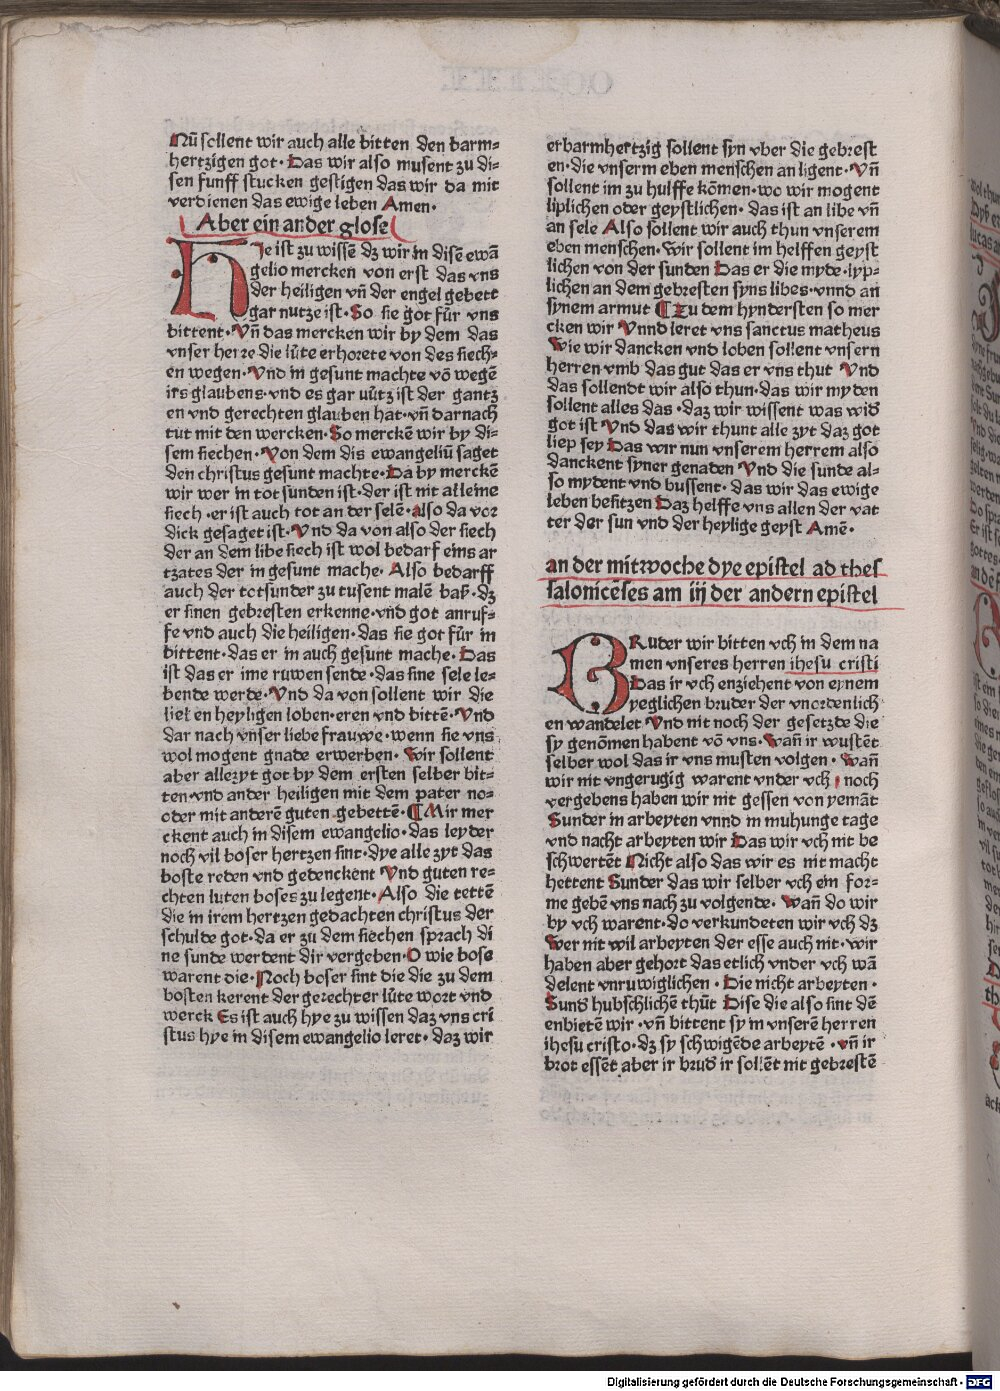 Nū sollent wir auch alle bitten den barm⸗
hertzigen got· Das wir also musent zu di⸗
sen funff stucken gestigen das wir da mit
verdienen das ewige leben Amen·
Aber ein ander glose
HJe ist zu wissē dz wir in disē ewā
gelio mercken von erst das vns
der heiligen vn̄ der engel gebett
gar nutze ist· So sie got fúr vns
bittent· Vn̄ das mercken wir by dem das
vnser herre die lúte erhorete von des siech⸗
en wegen· Vnd in gesunt machte vō wegē
irs glaubens· vnd es gar nútz ist der gantz
en vnd gerechten glauben hat· vn̄ darnach
tut mit den wercken· So merckē wir by di⸗
sem siechen· Von dem dis ewangeliū saget
den christus gesunt machte· Da by merckē
wir wer in tot sunden ist· der ist nit alleine
siech· er ist auch tot an der selē· also da vor
dick gesaget ist· Vnd da von also der siech
der an dem libe siech ist wol bedarf eins ar
tzates der in gesunt mache· Also bedarff
auch der totsunder zu tusent malē baß· dz
er sinen gebresten erkenne· vnd got anruf⸗
fe vnd auch die heiligen· das sie got fúr in
bittent· das er in auch gesunt mache· Das
ist das er ime ruwen sende· das sine sele le⸗
bende werde· Vnd da von sollent wir die
lieben heyligen loben· eren vnd bittē· Vnd
dar nach vnser liebe frauwe· wenn sie vns
wol mogent gnade erwerben· Wir sollent
aber allezyt got by dem ersten selber bit⸗
ten· vnd ander heiligen mit dem pater no⸗
oder mit anderē guten gebettē· ¶ Mir mer
ckent auch in disem ewangelio· das leyder
noch vil boser hertzen sint· dye alle zyt das
boste reden vnd gedenckent Vnd guten re⸗
chten luten boses zu legent· Also die tettē
die in irem hertzen gedachten christus der
schulde got· da er zu dem siechen sprach di
ne sunde werdent dir vergeben· O wie bose
warent die· Noch boser sint die die zu dem
bosten kerent der gerechter lúte wort vnd
werck Es ist auch hye zu wissen daz vns cri
stus hye in disem ewangelio leret· daz wir
erbarmhertzig sollent syn vber die gebrest
en· die vnserm eben menschen an ligent· Vn̄
sollent im zu hulffe kōmen· wo wir mogent
liplichen oder geystlichen· das ist an libe vn̄
an sele Also sollent wir auch thun vnserem
eben menschen· Wir sollent im helffen geyst
lichen von der sunden Das er die myde· lyp⸗
lichen an dem gebresten syns libes· vnnd an
synem armut ¶ Zu dem hyndersten so mer
cken wir Vnnd leret vns sanctus matheus
Wie wir dancken vnd loben sollent vnsern
herren vmb das gut das er vns thut Vnd
das sollendt wir also thun· das wir myden
sollent alles das· daz wir wissent was wid
got ist Vnd das wir thunt alle zyt daz got
liep sey Das wir nun vnserem herrem also
danckent syner genaden Vnd die sunde al⸗
so mydent vnd bussent· das wir das ewige
leben besitzen Daz helffe vns allen der vat
ter der sun vnd der heylige geyst Amē·
an der mitwoche dye epistel ad thes
salonicēses am iij der andern epistel
BRuder wir bitten vch in dem na
men vnseres herren ihesu cristi
Das ir vch enziehent von eynem
yeglichen bruder der vnordenlich
en wandelet Vnd nit noch der gesetzde die
sy genōmen habent vō vns· Wan̄ ir wustēt
selber wol das ir vns musten volgen· Wan̄
wir nit vngerugig warent vnder vch noch
vergebens haben wir nit gessen von yemāt
Sunder in arbeyten vnnd in muhunge tage
vnd nacht arbeyten wir Das wir vch nit be
schwertēt Nicht also das wir es nit macht
hettent Sunder das wir selber vch ein for⸗
me gebē vns nach zu volgende· Wan̄ do wir
by vch warent· do verkundeten wir vch dz
Wer nit wil arbeyten der esse auch nit· wir
haben aber gehort das etlich vnder vch wā
delent vnruwiglichen· Die nicht arbeyten·
Sund hubschlichē thūt Dise die also sint dē
enbietē wir· vn̄ bittent sy in vnserē herren
ihesu cristo· dz sy schwigēde arbeytē· vn̄ ir
brot essēt aber ir brud ir sollēt nit gebrestē
Digitalisierung gefördert durch die Deutsche Forschungsgemeinschaft · DFG